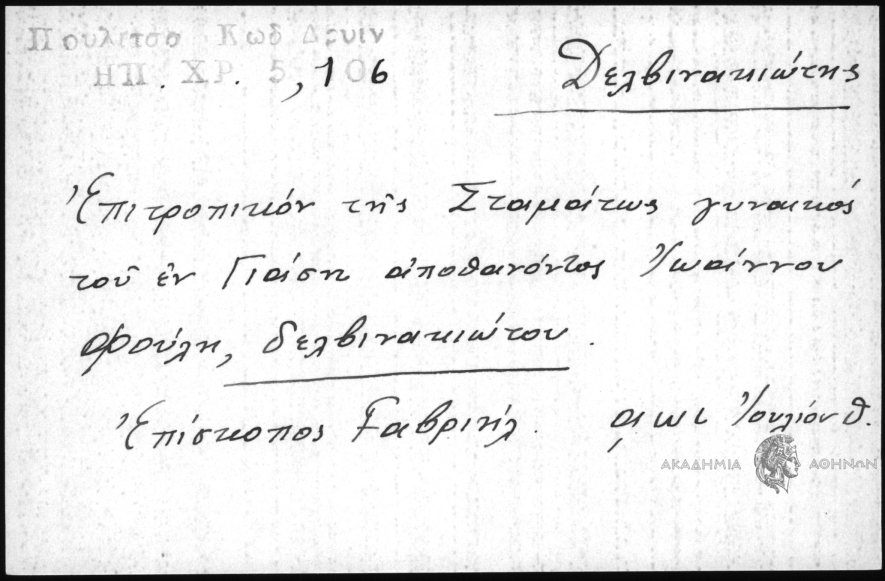 Πουλιτσα Κωδ Δρυϊν
ΗΠ. ΧΡ. 5, 106
Δελβινακιώτης
Ἐπιτροπικόν τῆς Σταμάτως γυναικός
τοῦ ἐν Γιάση ἀποθανόντος Ἰωάννου
Φούλη, δελβινακιώτου.
Ἐπίσκοπος Γαβριήλ. ͵αωι Ἰουλίου θ.
ΑΚΑΔΗΜΙΑ ΑΘΗΝΩΝ